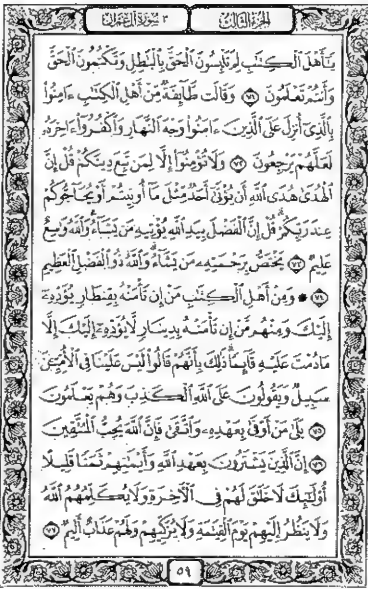 الجزء الثالث
٣ سورة آل عمران
يَٰٓأَهۡلَ ٱلۡكِتَٰبِ لِمَ تَلۡبِسُونَ ٱلۡحَقَّ بِٱلۡبَٰطِلِ وَتَكۡتُمُونَ ٱلۡحَقَّ
وَأَنتُمۡ تَعۡلَمُونَ ٧١ وَقَالَت طَّآئِفَةٞ مِّنۡ أَهۡلِ ٱلۡكِتَٰبِ ءَامِنُواْ
بِٱلَّذِيٓ أُنزِلَ عَلَى ٱلَّذِينَ ءَامَنُواْ وَجۡهَ ٱلنَّهَارِ وَٱكۡفُرُوٓاْ ءَاخِرَهُۥ
لَعَلَّهُمۡ يَرۡجِعُونَ ٧٢ وَلَا تُؤۡمِنُوٓاْ إِلَّا لِمَن تَبِعَ دِينَكُمۡ قُلۡ إِنَّ
ٱلۡهُدَىٰ هُدَى ٱللَّهِ أَن يُؤۡتَىٰٓ أَحَدٞ مِّثۡلَ مَآ أُوتِيتُمۡ أَوۡ يُحَآجُّوكُمۡ
عِندَ رَبِّكُمۡۗ قُلۡ إِنَّ ٱلۡفَضۡلَ بِيَدِ ٱللَّهِ يُؤۡتِيهِ مَن يَشَآءُۗ وَٱللَّهُ وَٰسِعٌ
عَلِيمٞ ٧٣ يَخۡتَصُّ بِرَحۡمَتِهِۦ مَن يَشَآءُۗ وَٱللَّهُ ذُو ٱلۡفَضۡلِ ٱلۡعَظِيمِ
٧٤ ۞ وَمِنۡ أَهۡلِ ٱلۡكِتَٰبِ مَنۡ إِن تَأۡمَنۡهُ بِقِنطَارٖ يُؤَدِّهِۦٓ
إِلَيۡكَ وَمِنۡهُم مَّنۡ إِن تَأۡمَنۡهُ بِدِينَارٖ لَّا يُؤَدِّهِۦٓ إِلَيۡكَ إِلَّا
مَا دُمۡتَ عَلَيۡهِ قَآئِمٗاۗ ذَٰلِكَ بِأَنَّهُمۡ قَالُواْ لَيۡسَ عَلَيۡنَا فِي ٱلۡأُمِّيِّـۧنَ
سَبِيلٞ وَيَقُولُونَ عَلَى ٱللَّهِ ٱلۡكَذِبَ وَهُمۡ يَعۡلَمُونَ
٧٥ بَلَىٰۚ مَنۡ أَوۡفَىٰ بِعَهۡدِهِۦ وَٱتَّقَىٰ فَإِنَّ ٱللَّهَ يُحِبُّ ٱلۡمُتَّقِينَ
٧٦ إِنَّ ٱلَّذِينَ يَشۡتَرُونَ بِعَهۡدِ ٱللَّهِ وَأَيۡمَٰنِهِمۡ ثَمَنٗا قَلِيلًا
أُوْلَٰٓئِكَ لَا خَلَٰقَ لَهُمۡ فِي ٱلۡأٓخِرَةِ وَلَا يُكَلِّمُهُمُ ٱللَّهُ
وَلَا يَنظُرُ إِلَيۡهِمۡ يَوۡمَ ٱلۡقِيَٰمَةِ وَلَا يُزَكِّيهِمۡ وَلَهُمۡ عَذَابٌ أَلِيمٞ ٧٧
٥٩